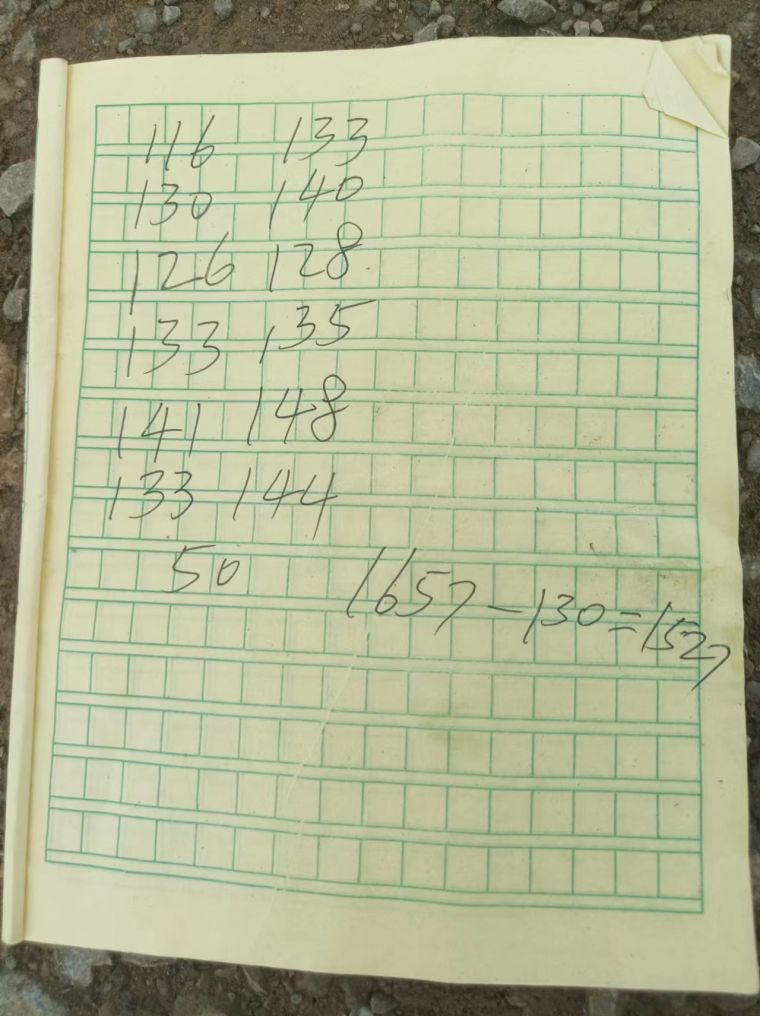 116 133
130 140
126 128
133 135
141 148
133 144
50
1657-130=1527